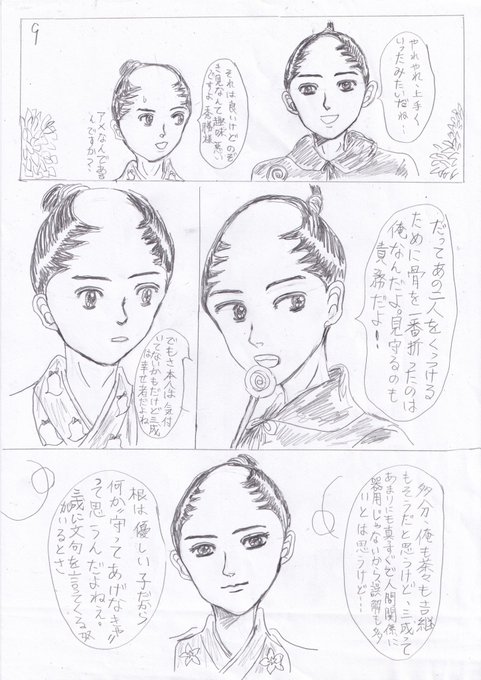 9
やれやれ、上手く
いったみたいだね〜
それは良いけどのぞ
き見なんて趣味悪い
ですよ秀勝様
アメなんて
んですか?
だってあの二人をくっつける
ために骨を一番折ったのは
俺なんだよ。見守るのも
責務だよ!
でもさ、本人は気付
いてないかもだけど三成
は幸せ者だよね
多分、俺も茶々も吉継
もそうだと思うけど、三成って
あまりにも真すぐど人間関係に
器用じゃないから誤解も多
いとは思うけど…
根は優しい子だから
何か守ってあげなきゃ
って思うんだよねぇ。
三成に文句を言ってくる奴
がいるとさ